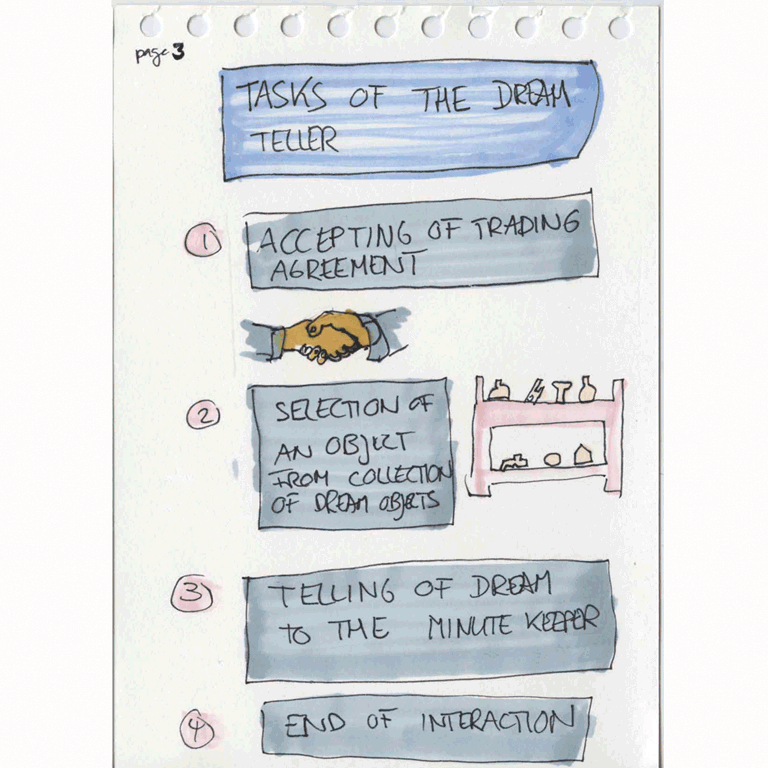 page 3
TASKS OF THE DREAM
TELLER
1
ACCEPTING OF TRADING
AGREEMENT
2
SELECTION OF
AN OBJECT
FROM COLLECTION
OF DREAM OBJECTS
3
TELLING OF DREAM
TO THE MINUTE KEEPER
4
END OF INTERACTION